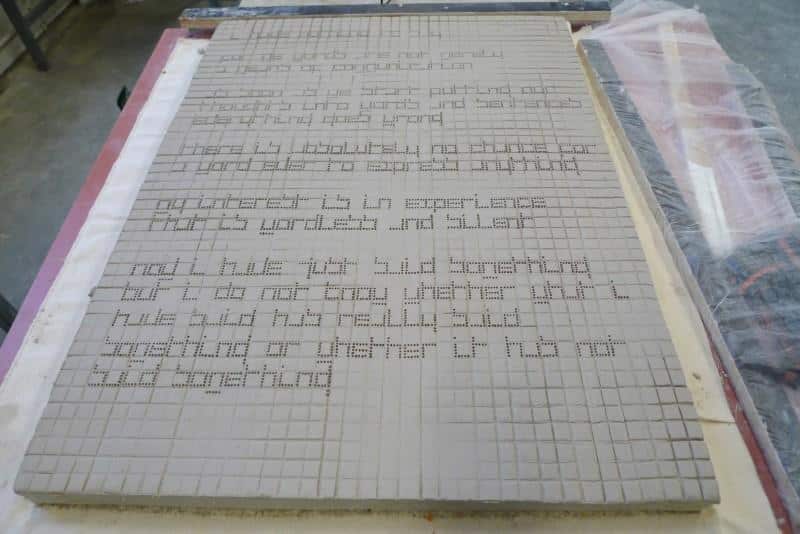 for me words are not merely
a means of communication
as soon as we start putting our
thoughts into words and sentences
everything goes wrong
there is absolutely no chance for
a word ever to express anything
my interest is in experience
that is wordless and silent
now i have just said something
but i do not know whether what i
have said has really said
something or whether it has not
said something